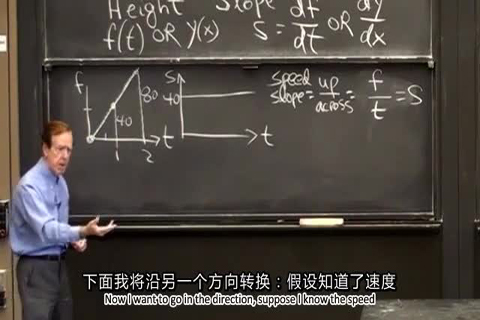 Height Slope df dy
f(t) OR y(x) S = dt OR dx
f S speed up f
40 slope = across = t = S
80
40
t t
1 2
下面我将沿另一个方向转换：假设知道了速度
Now I want to go in the direction, suppose I know the speed